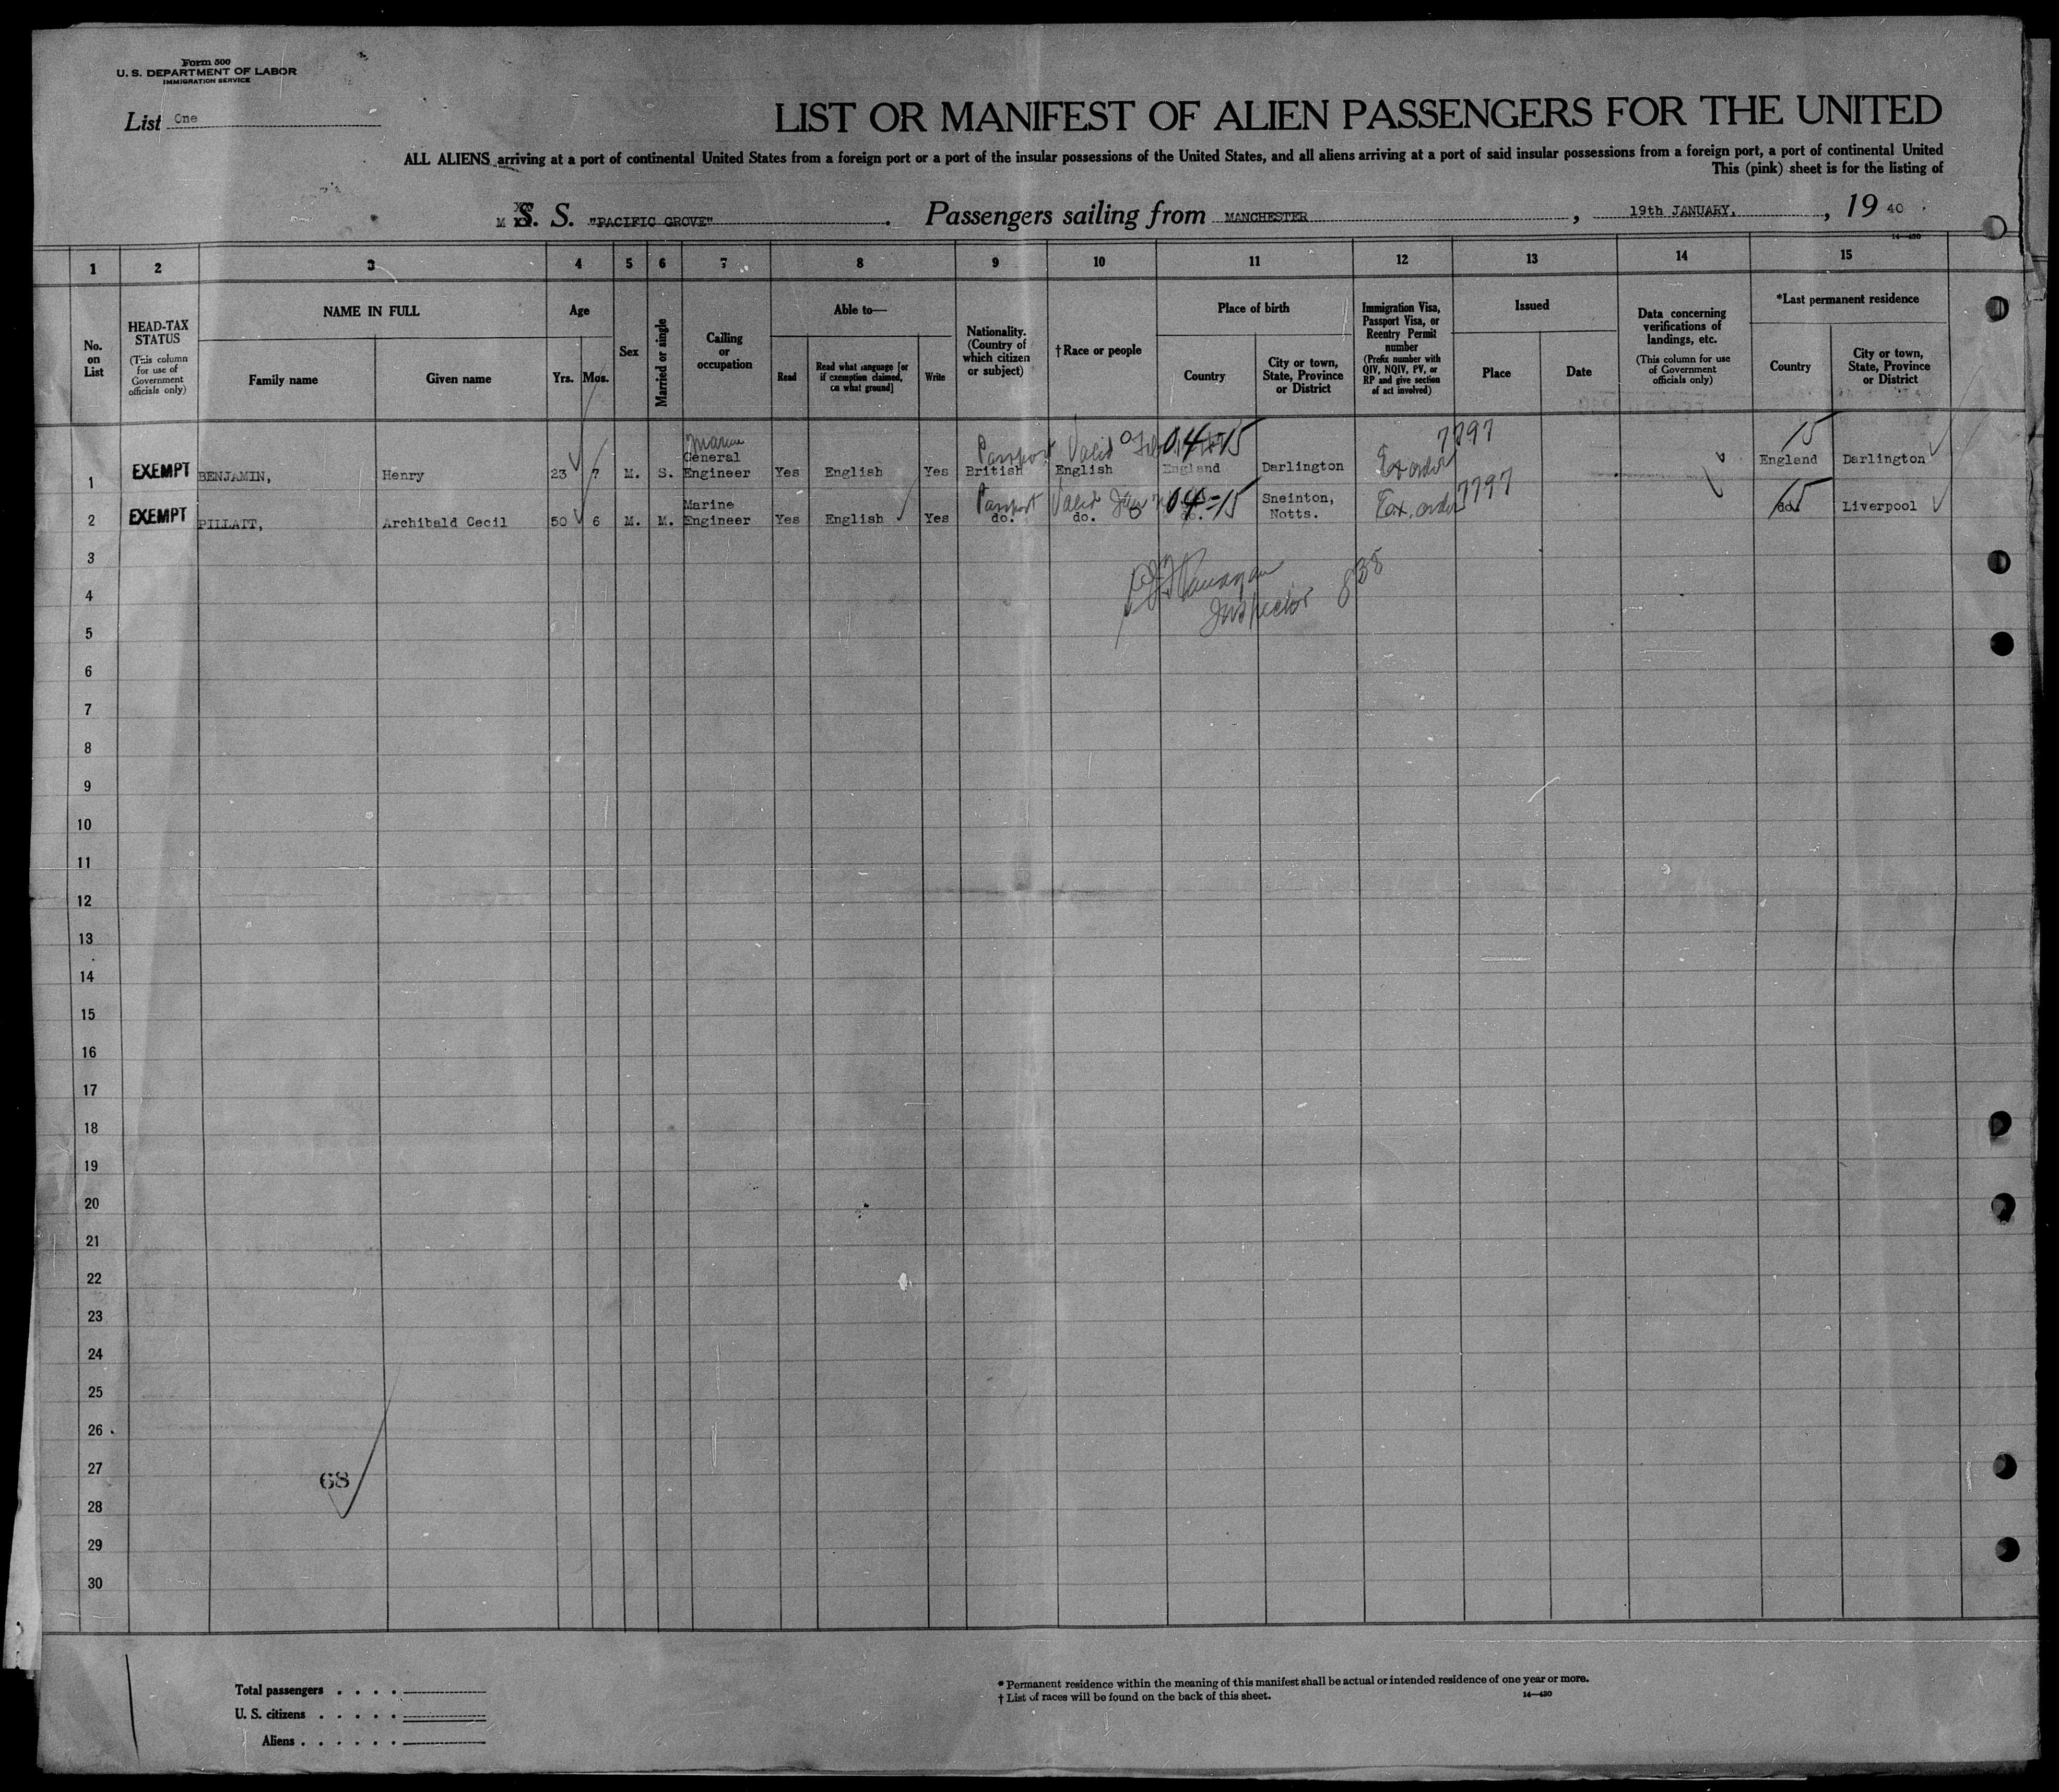 Form 500
U. S. DEPARTMENT OF LABOR
IMMIGRATION SERVICE
List One
LIST OR MANIFEST OF ALIEN PASSENGERS FOR THE UNITED
ALL ALIENS arriving at a port of continental United States from a foreign port or a port of the insular possessions of the United States, and all aliens arriving at a port of said insular possessions from a foreign port, a port of continental United
This (pink) sheet is for the listing of
M S. S. "PACIFIC GROVE" . Passengers sailing from MANCHESTER , 19th JANUARY, , 19 40
14—430
1 2 3 4 5 6 7 8 9 10 11 12 13 14 15
No. on List
HEAD-TAX STATUS
(This column for use of Government officials only)
NAME IN FULL
Family name
Given name
Age
Yrs. Mos.
Sex
Married or single
Calling or occupation
Able to—
Read
Read what language [or if exemption claimed, on what ground]
Write
Nationality. (Country of which citizen or subject)
†Race or people
Place of birth
Country
City or town, State, Province or District
Immigration Visa, Passport Visa, or Reentry Permit number
(Prefix number with QIV, NQIV, PV, or RP and give section of act involved)
Issued
Place
Date
Data concerning verifications of landings, etc.
(This column for use of Government officials only)
*Last permanent residence
Country
City or town, State, Province or District
Marine Passport Valid 04-15 7797 15
1 EXEMPT BENJAMIN, Henry 23 7 M. S. General Engineer Yes English Yes British English England Darlington Ex order England Darlington
Passport Valid 04-15 Ex. order 7797 15
2 EXEMPT PILLATT, Archibald Cecil 50 6 M. M. Marine Engineer Yes English Yes do. do. do. Sneinton, Notts. do. Liverpool
3
4
Inspector 838
5
6
7
8
9
10
11
12
13
14
15
16
17
18
19
20
21
22
23
24
25
26
27
68
28
29
30
Total passengers . . . .
U. S. citizens . . . . .
Aliens . . . . . .
* Permanent residence within the meaning of this manifest shall be actual or intended residence of one year or more.
† List of races will be found on the back of this sheet.
14—430